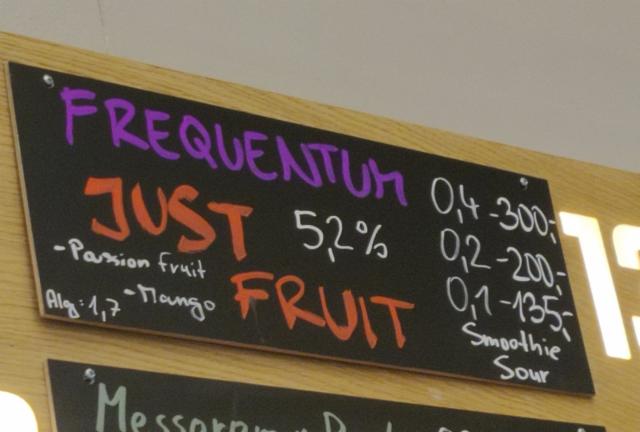 FREQUENTUM
JUST
FRUIT
5,2%
-Passion fruit
-Mango
Alg: 1,7
0,4 -300,-
0,2 -200,-
0,1 -135,-
Smoothie
Sour
13